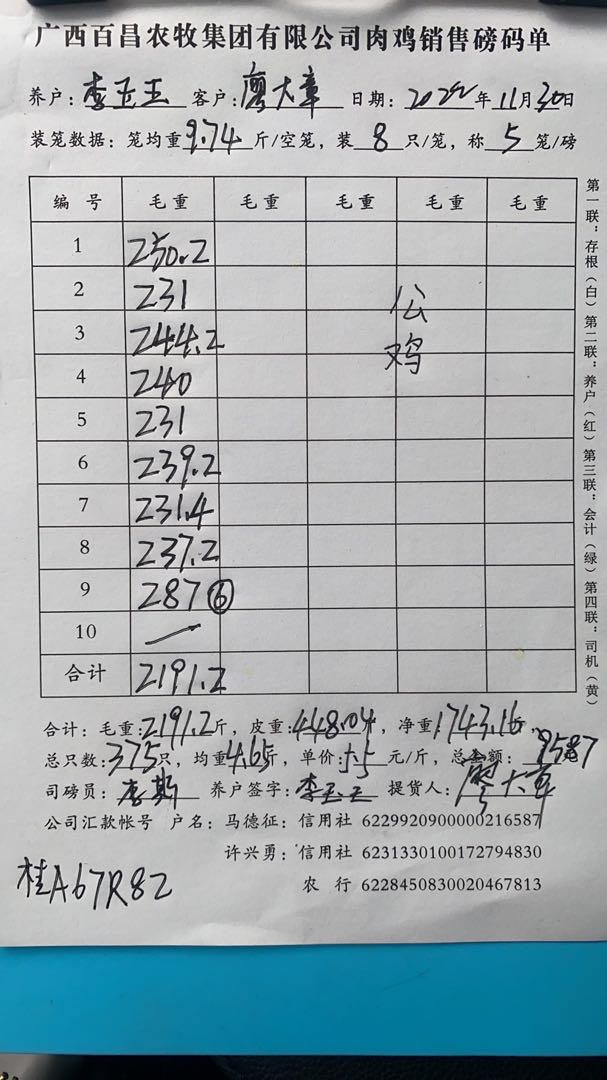 广西百昌农牧集团有限公司肉鸡销售磅码单
养户：李玉玉 客户：廖大章 日期：2022年11月30日
装笼数据：笼均重9.74斤/空笼，装8只/笼，称5笼/磅
编号 毛重 毛重 毛重 毛重 毛重
1 250.2
2 231
3 244.2
4 240
5 231
6 239.2
7 231.4
8 237.2
9 287⑥
10 —
合计 2191.2
公鸡
合计：毛重：2191.2斤，皮重：448.04，净重1743.16
总只数：375只，均重4.65斤，单价：5.5元/斤，总金额：9587
司磅员：李斯 养户签字：李玉玉 提货人：廖大章
公司汇款帐号 户名：马德征：信用社 6229920900000216587
许兴勇：信用社 6231330100172794830
农行 6228450830020467813
桂A67R82
第一联：存根（白）第二联：养户（红）第三联：会计（绿）第四联：司机（黄）